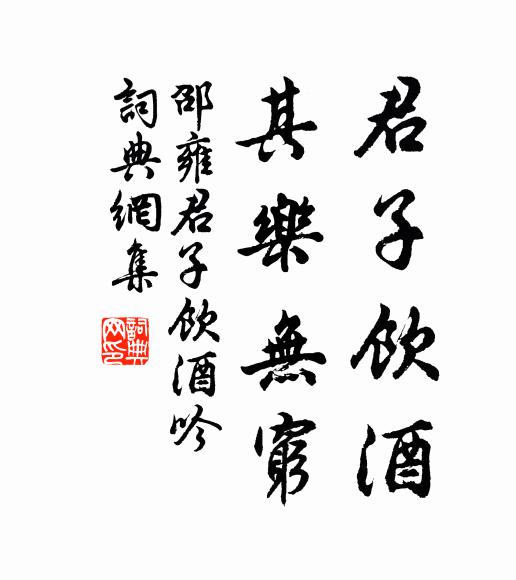 君子飲酒
其樂無窮
邵雍君子飲酒吟
詞典網集
詞典網印